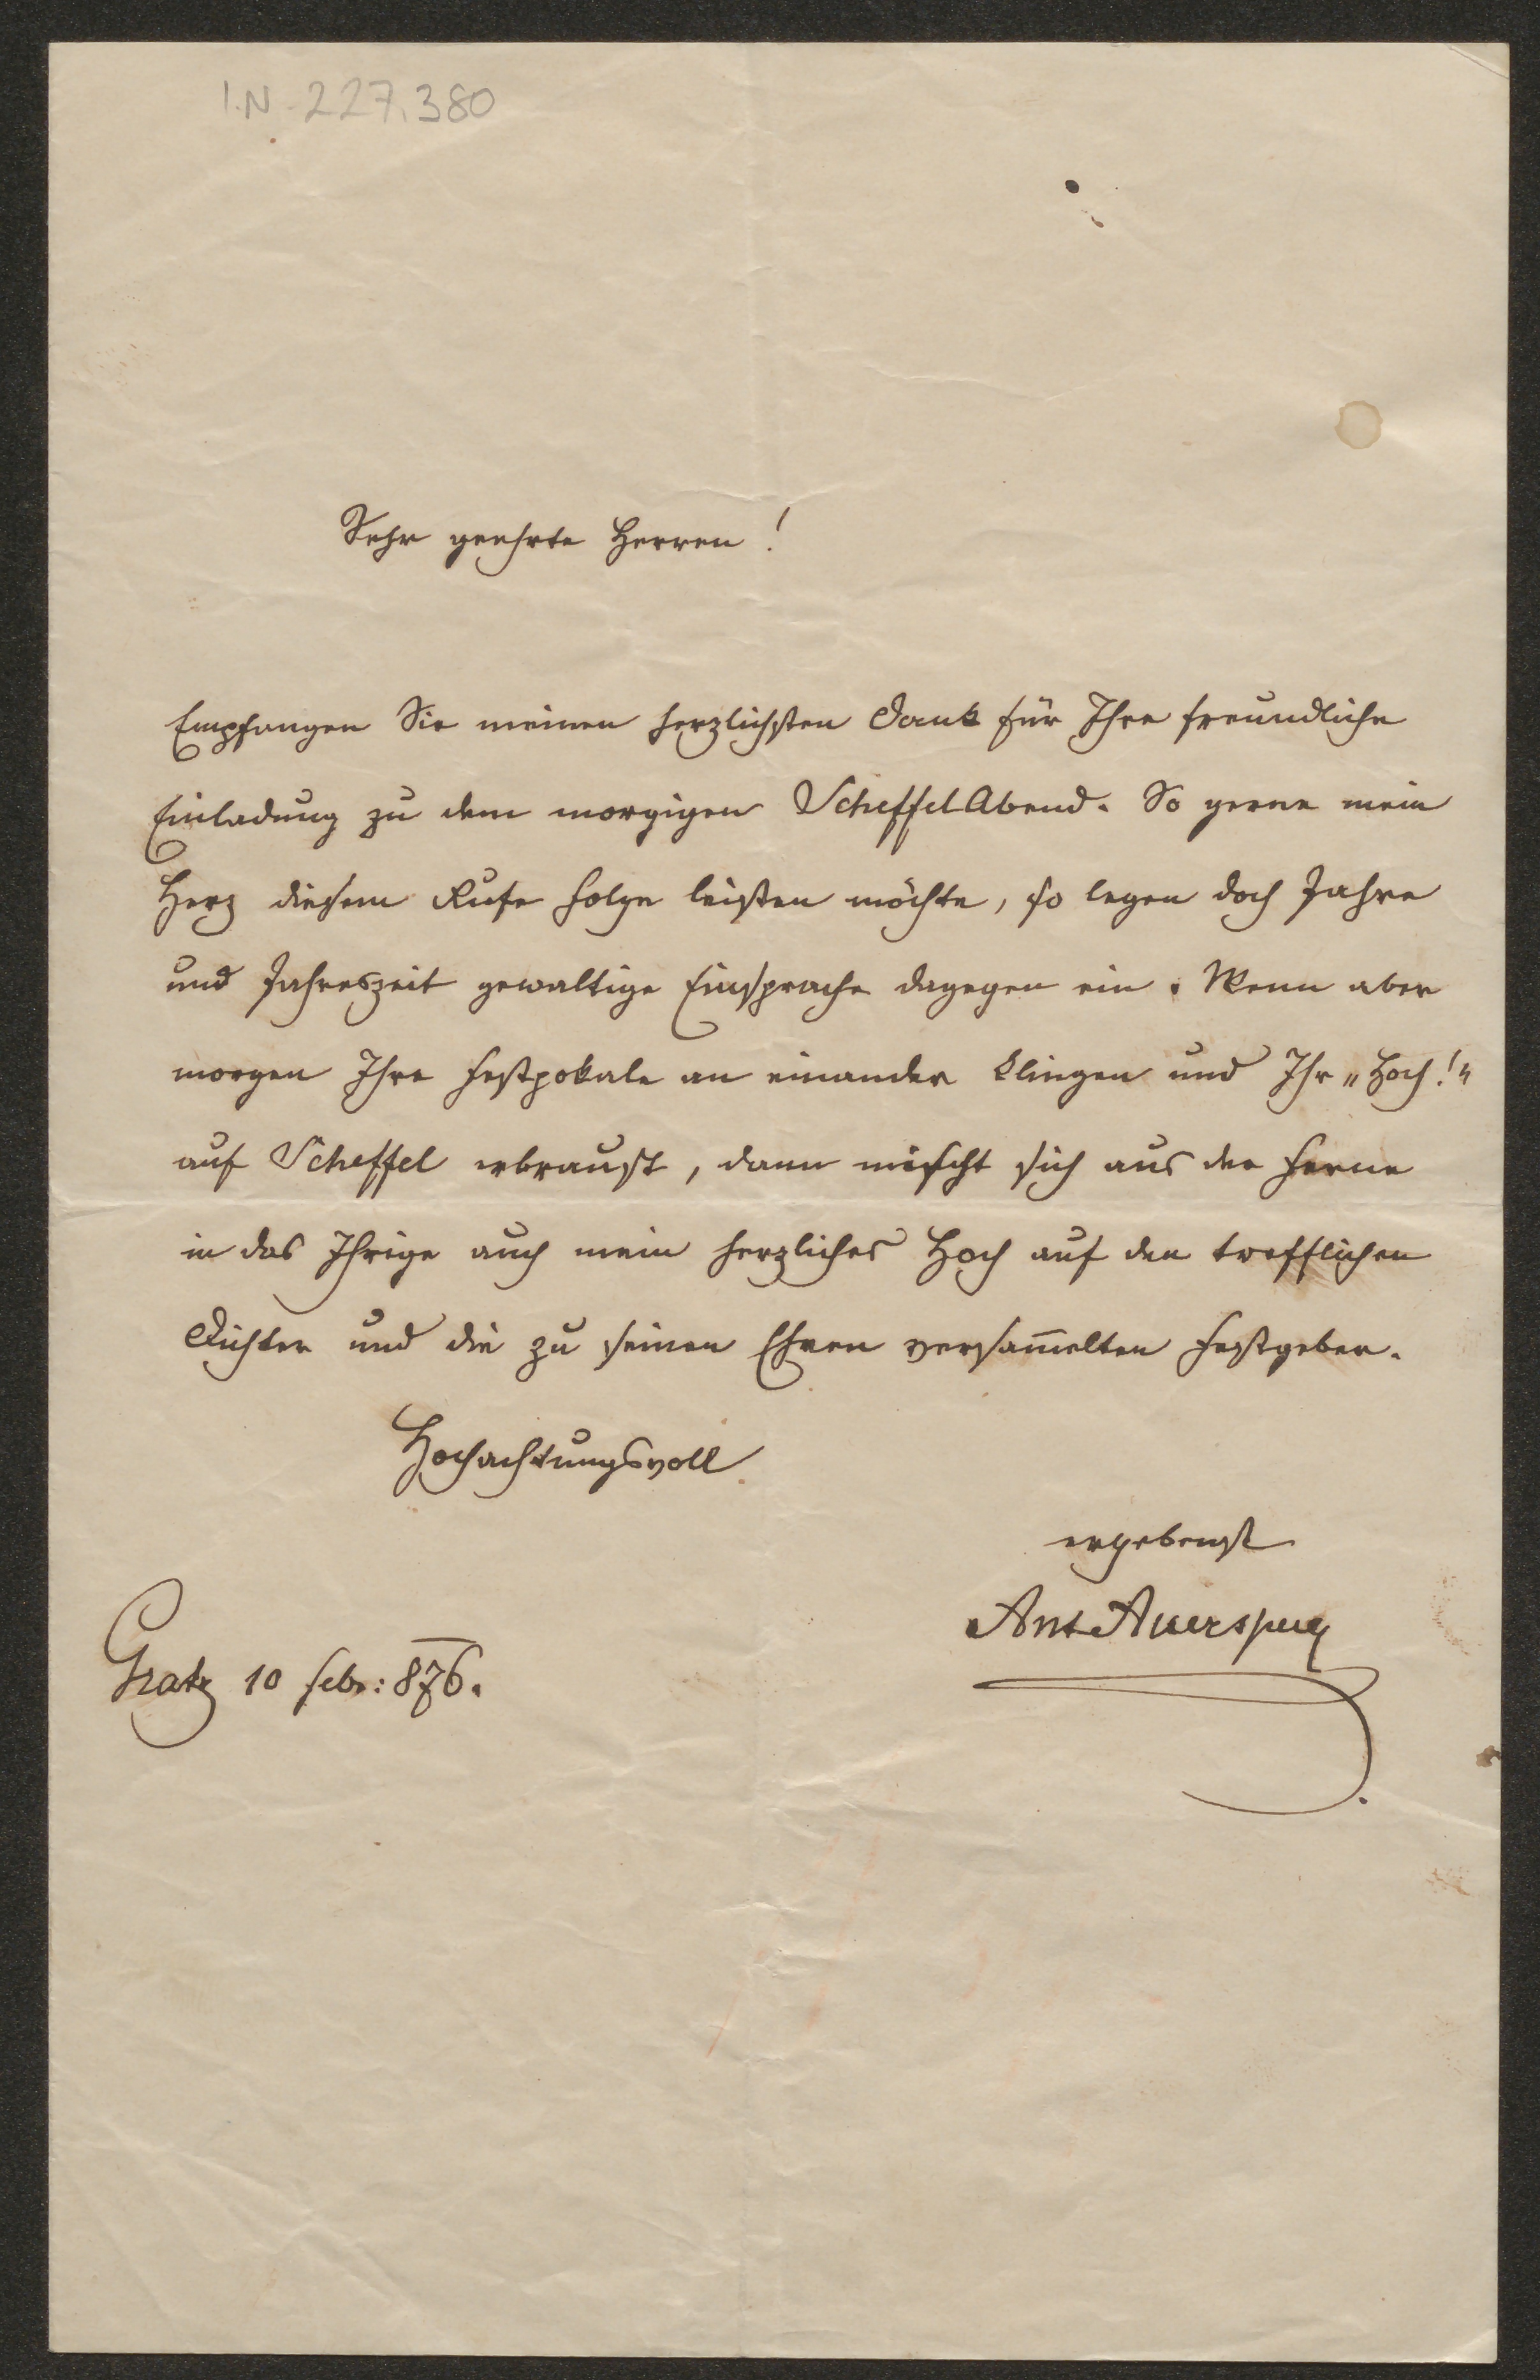 I.N. 227.380
Sehr geehrte Herren!
Empfangen Sie meinen herzlichsten Dank für Ihre freundliche
Einladung zu dem morgigen Scheffel Abend. So gerne mein
Herz diesem Rufe Folge leisten möchte, so legen doch Jahre
und Jahreszeit gewaltige Einsprache dagegen ein. Wenn aber
morgen Ihre Festpokale an einander klingen und Ihr „Hoch!"
auf Scheffel erbraust, dann mischt sich aus der Ferne
in das Ihrige auch mein herzliches Hoch auf den trefflichen
Dichter und die zu seinen Ehren versam̅elten Festgeber.
Hochachtungsvoll
ergebenst
Ant Auersperg
Gratz 10 Febr: 876.